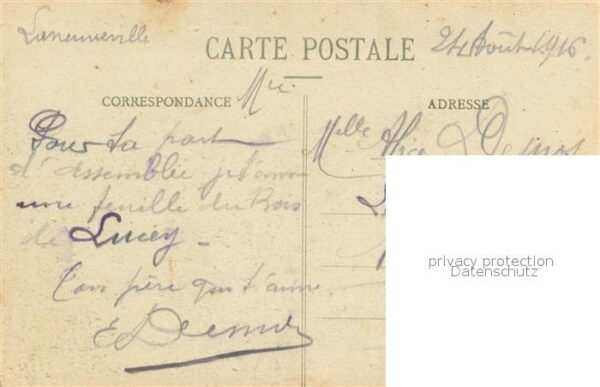 Laneuveville
CARTE POSTALE
24 Août 1916.
CORRESPONDANCE
ADRESSE
Mlle Alice
Pour ta part
d'assemblée je t'envoie
une feuille du Bois
de Lucey -
Ton père qui t'aime
privacy protection
Datenschutz